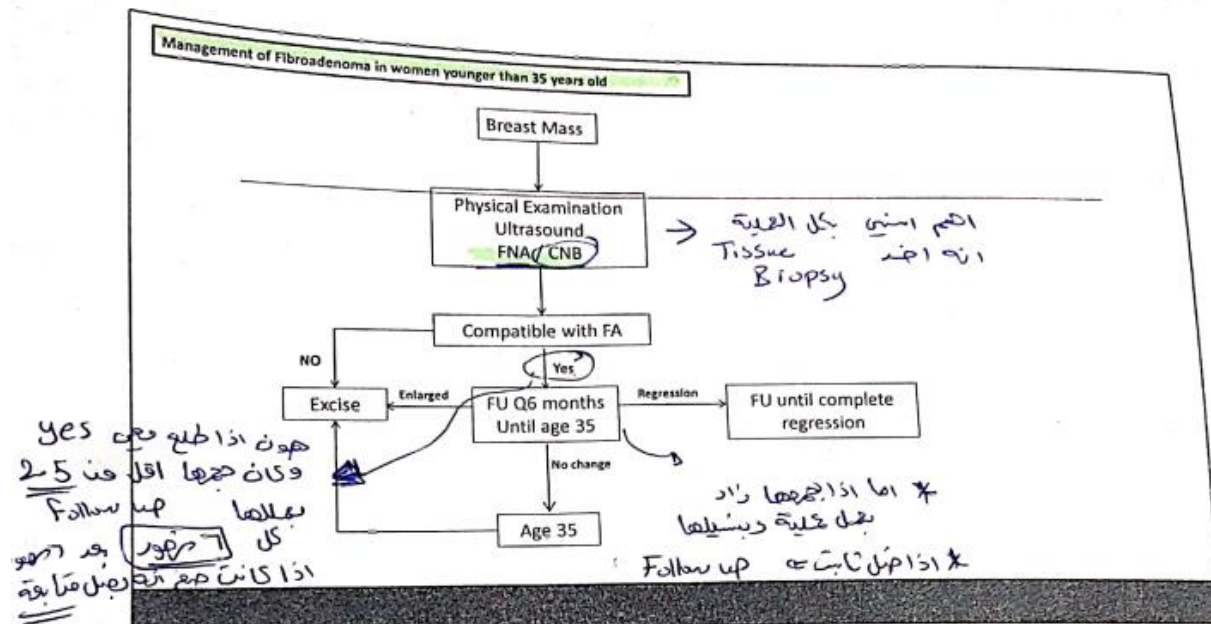 Management of Fibroadenoma in women younger than 35 years old
Breast Mass
Physical Examination
Ultrasound
FNA/ CNB
اهم اشي بكل العملية
انه اخد Tissue
Biopsy
Compatible with FA
NO
Yes
Excise
Enlarged
FU Q6 months
Until age 35
Regression
FU until complete
regression
No change
Age 35
هون اذا طلع معي yes
وكان حجمها اقل من 2.5
بعملها Follow up
كل ٦ شهور
اذا كانت
متابعة
* اما اذا حجمها زاد
بعمل عملية وبشيلها
* اذا ضل ثابت Follow up